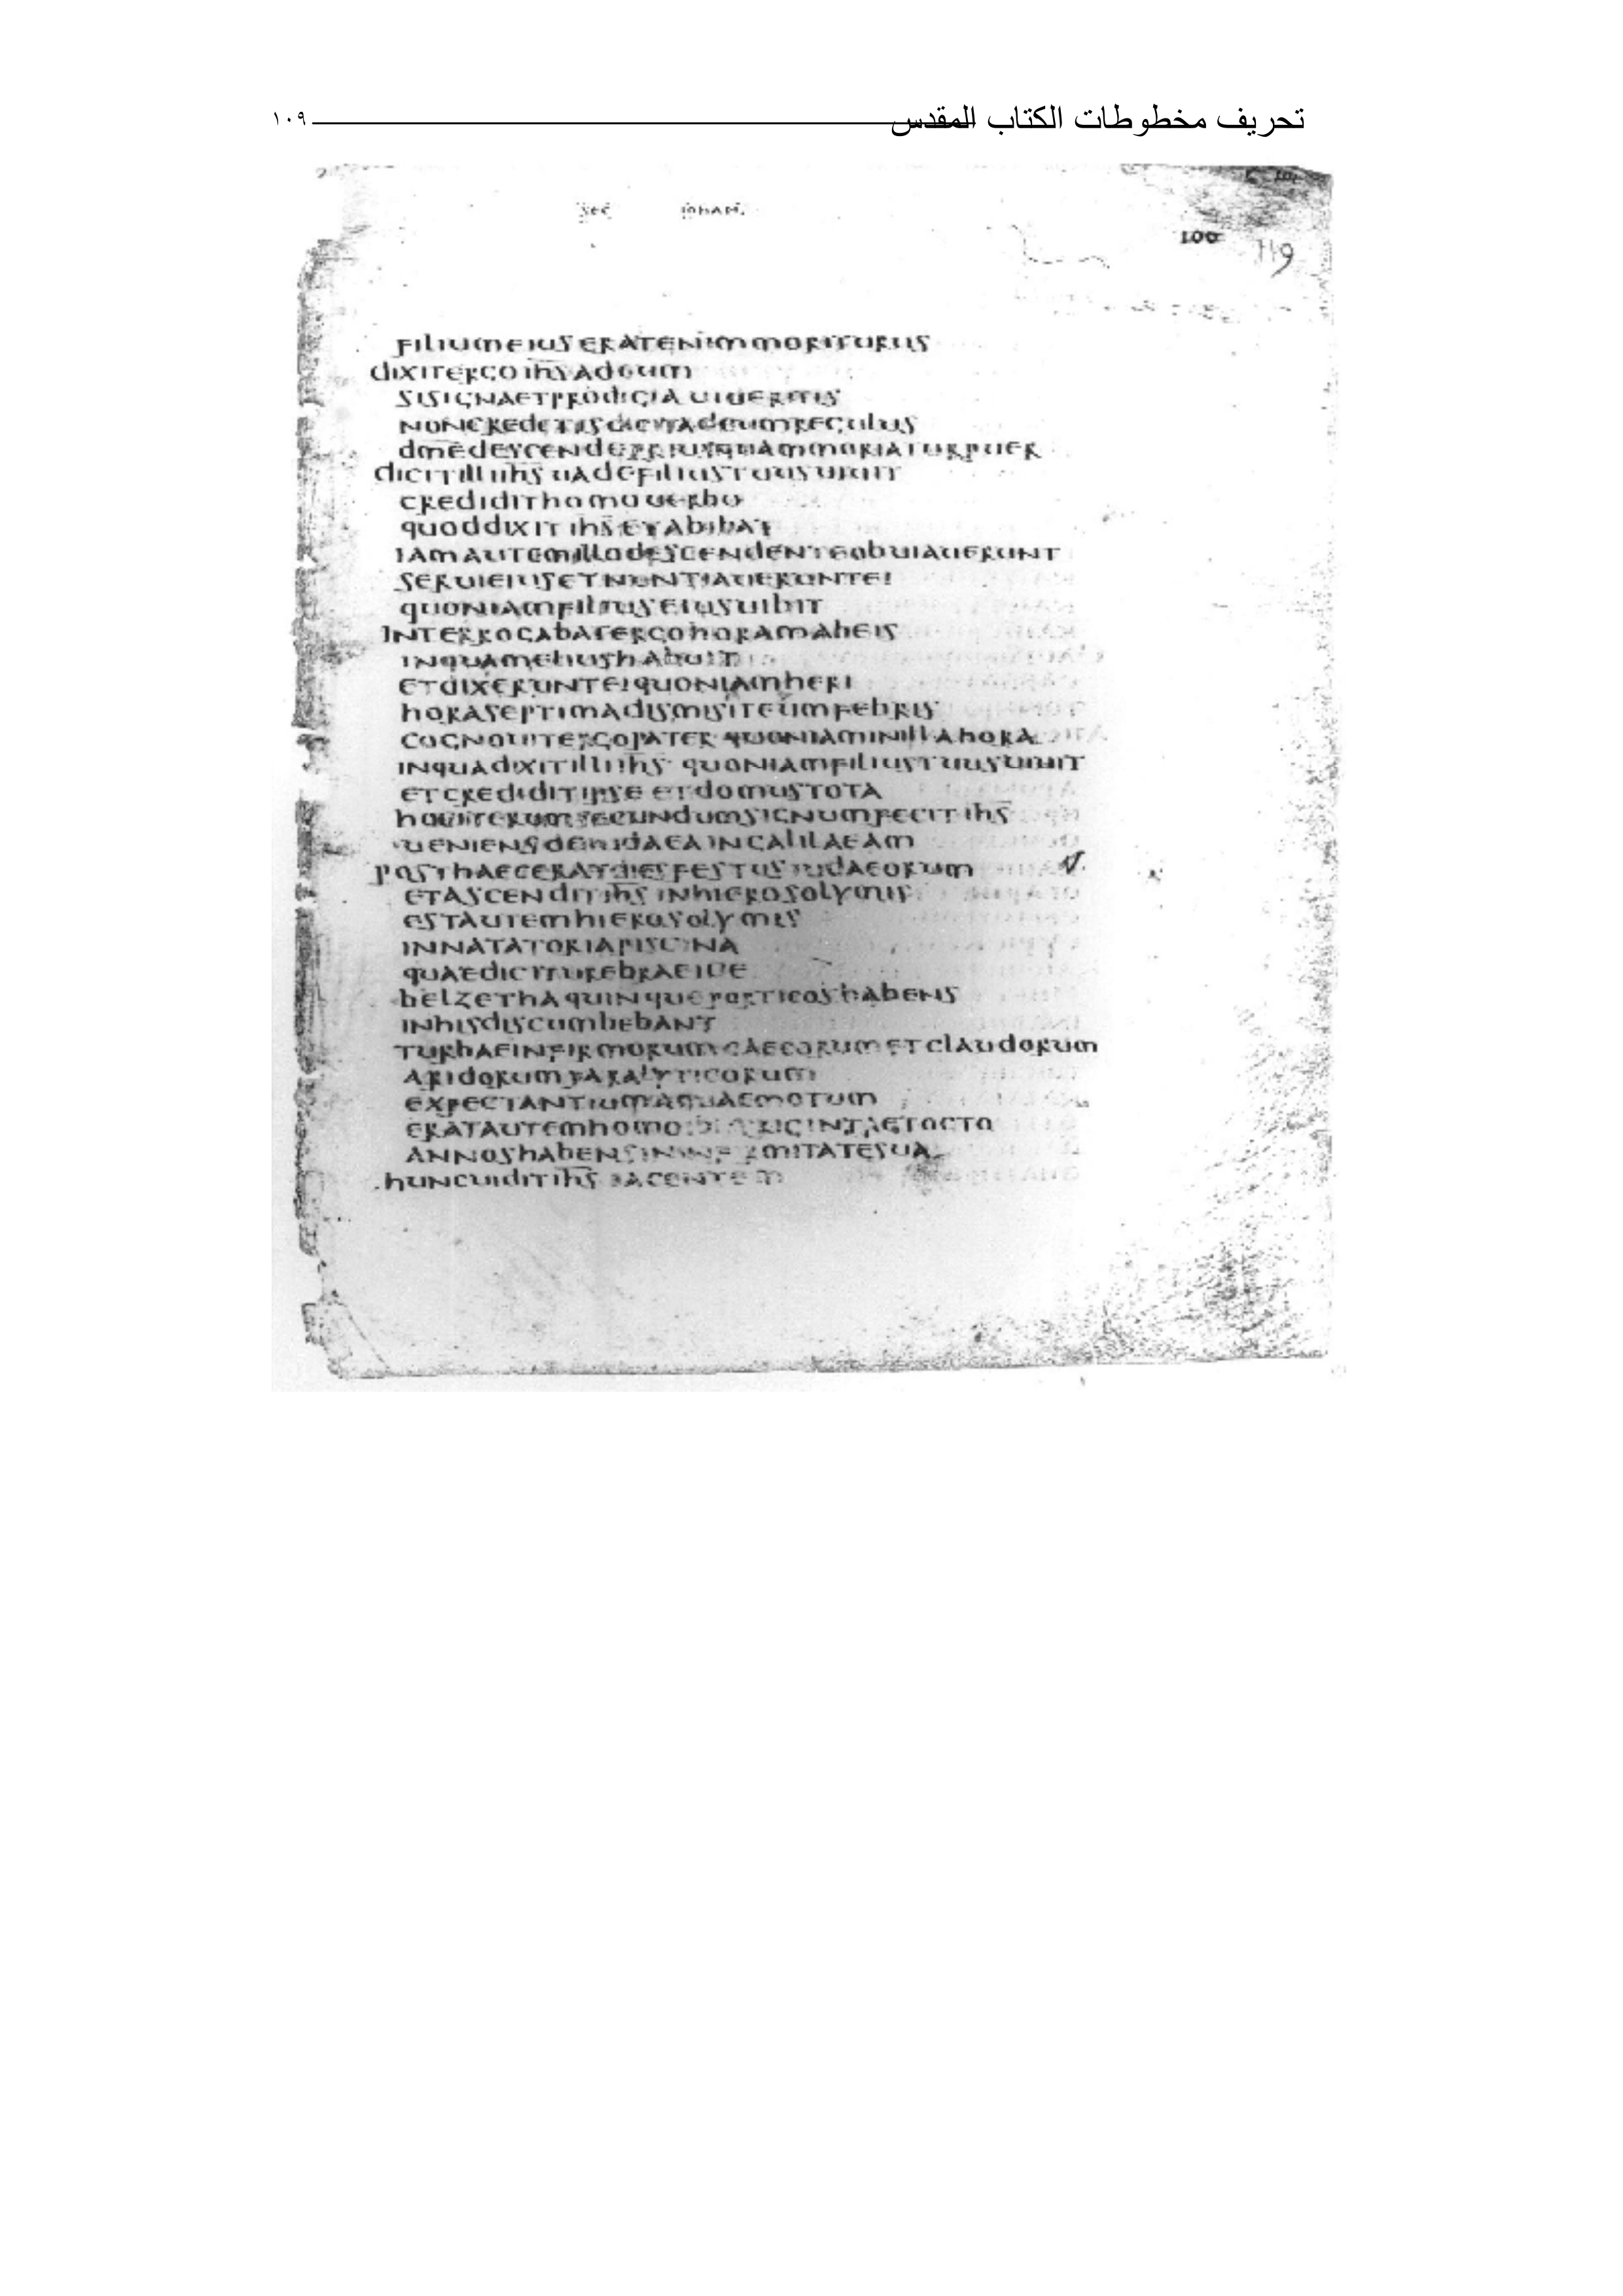 تحريف مخطوطات الكتاب المقدس ١٠٩
SEC IOHAN.
100 119
FILIUMEIUSERATENIMMORITURUS
DIXITERGOIHSADEUM
SISIGNAETPRODIGIAUIDERITIS
NONCREDETISDICITADEUMREGULUS
DMEDESCENDEPRIUSQUAMMORIATURPUER
DICITILLIIHSUADEFILIUSTUUSUIUIT
CREDIDITHOMOUERBO
QUODDIXITIHSETABIBAT
IAMAUTEMILLODESCENDENTEOBUIAUERUNT
SERUIEIUSETNUNTIAUERUNTEI
QUONIAMFILIUSEIUSUIBIT
INTERROGABATERGOHORAMABEIS
INQUAMELIUSHABUIT
ETDIXERUNTEIQUONIAMHERI
HORASEPTIMADISMISITEUMFEBRIS
COGNOUITERGOPATERQUONIAMINILLAHORA
INQUADIXITILLIIHSQUONIAMFILIUSTUUSUIUIT
ETCREDIDITIPSEETDOMUSTOTA
HOCITERUMSECUNDUMSIGNUMFECITIHS
UENIENSDEIUDAEAINGALILAEAM
POSTHAECERATDIESFESTUSIUDAEORUM
ETASCENDITIHSINHIEROSOLYMIS
ESTAUTEMHIEROSOLYMIS
INNATATORIAPISCINA
QUAEDICITUREBRAEICE
BELZETHAQUINQUEPORTICOSHABENS
INHISDISCUMBEBANT
TURBAEINFIRMORUMCAECORUMETCLAUDORUM
ARIDORUMPARALYTICORUM
EXPECTANTIUMAQUAEMOTUM
ERATAUTEMHOMOIBITRIGINTAETOCTO
ANNOSHABENSININFIRMITATESUA
HUNCUIDITIHSIACENTEM